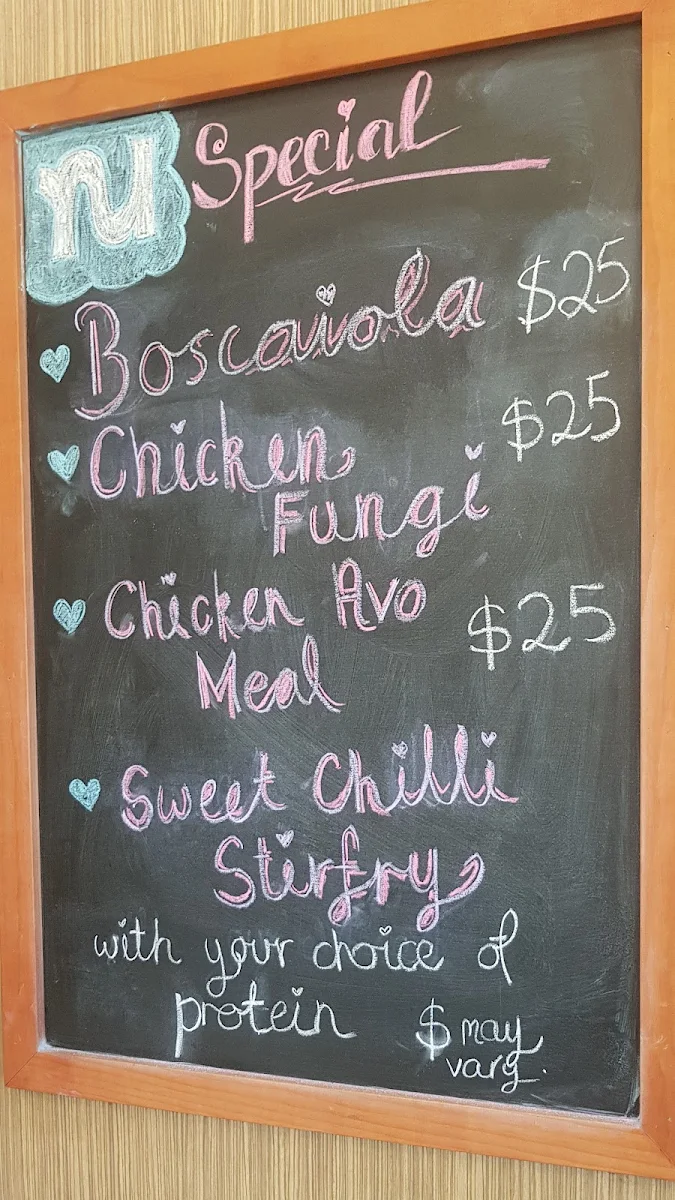 nu Special
Boscaiola $25
Chicken $25
Fungi
Chicken Avo $25
Meal
Sweet Chilli
Stirfry
with your choice of
protein $ may
vary.